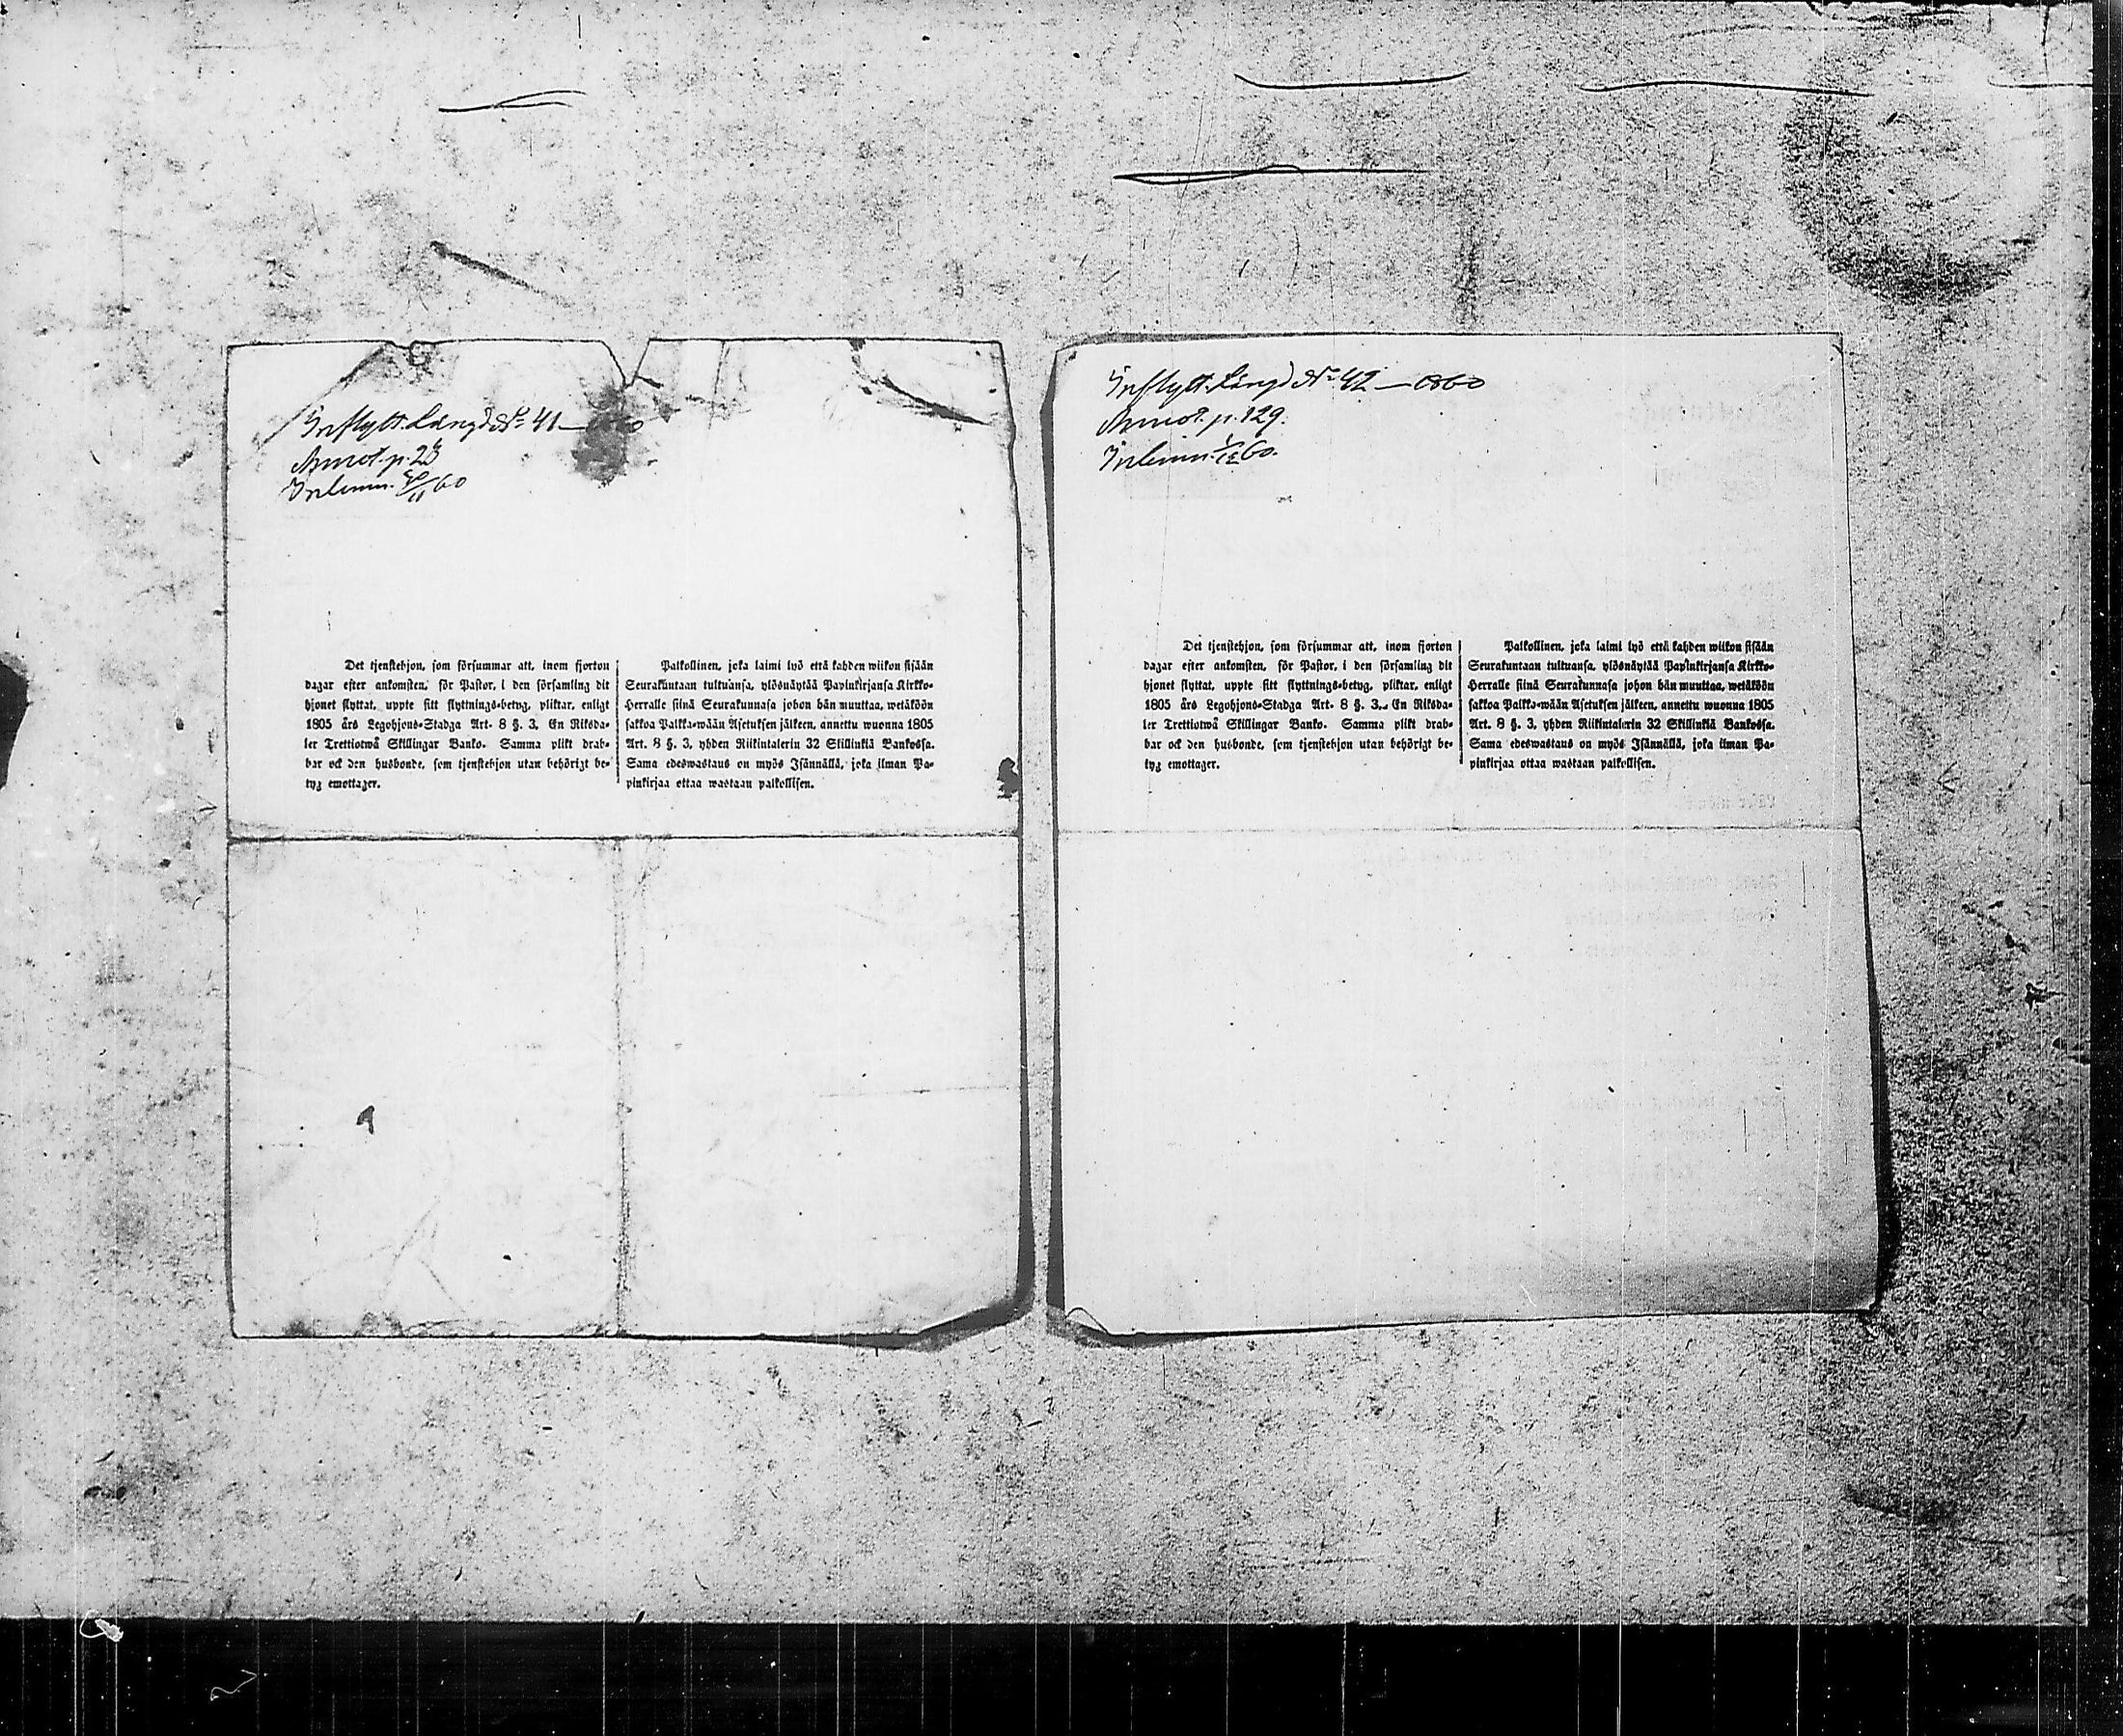 Inflytt. Längd No 41 — 1860
Annot. p. 23
Inlemn. 30/11 60
Det tjenstehjon, som försummar att, inom fjorton
dagar efter ankomsten, för Pastor, i den församling dit
hjonet flyttat, uppte sitt flyttnings-betyg, pliktar, enligt
1805 års Legohjons-Stadga Art. 8 §. 3, En Riksda-
ler Trettiotwå Skillingar Banko. Samma plikt drab-
bar ock den husbonde, som tjenstehjon utan behörigt be-
tyg emottager.
Palkollinen, joka laimi lyö että kahden wiikon sisään
Seurakuntaan tultuansa, ylösnäytää Papinkirjansa Kirkko-
Herralle siinä Seurakunnasa johon hän muuttaa, wetäköön
sakkoa Palkka-wään Asetuksen jälkeen, annettu wuonna 1805
Art. 8 §. 3, yhden Riikintalerin 32 Skillinkiä Bankossa.
Sama edeswastaus on myös Isännällä, joka ilman Pa-
pinkirjaa ottaa wastaan palkollisen.
Inflytt. Längd No 42 — 1860
Annot. p. 129.
Inlemn. 60.
Det tjenstehjon, som försummar att, inom fjorton
dagar efter ankomsten, för Pastor, i den församling dit
hjonet flyttat, uppte sitt flyttnings-betyg, pliktar, enligt
1805 års Legohjons-Stadga Art. 8 §. 3., En Riksda-
ler Trettiotwå Skillingar Banko. Samma plikt drab-
bar ock den husbonde, som tjenstehjon utan behörigt be-
tyg emottager.
Palkollinen, joka laimi lyö että kahden wiikon sisään
Seurakuntaan tultuansa, ylösnäytää Papinkirjansa Kirkko-
Herralle siinä Seurakunnasa johon hän muuttaa, wetäköön
sakkoa Palkka-wään Asetuksen jälkeen, annettu wuonna 1805
Art. 8 §. 3, yhden Riikintalerin 32 Skillinkiä Bankossa.
Sama edeswastaus on myös Isännällä, joka ilman Pa-
pinkirjaa ottaa wastaan palkollisen.